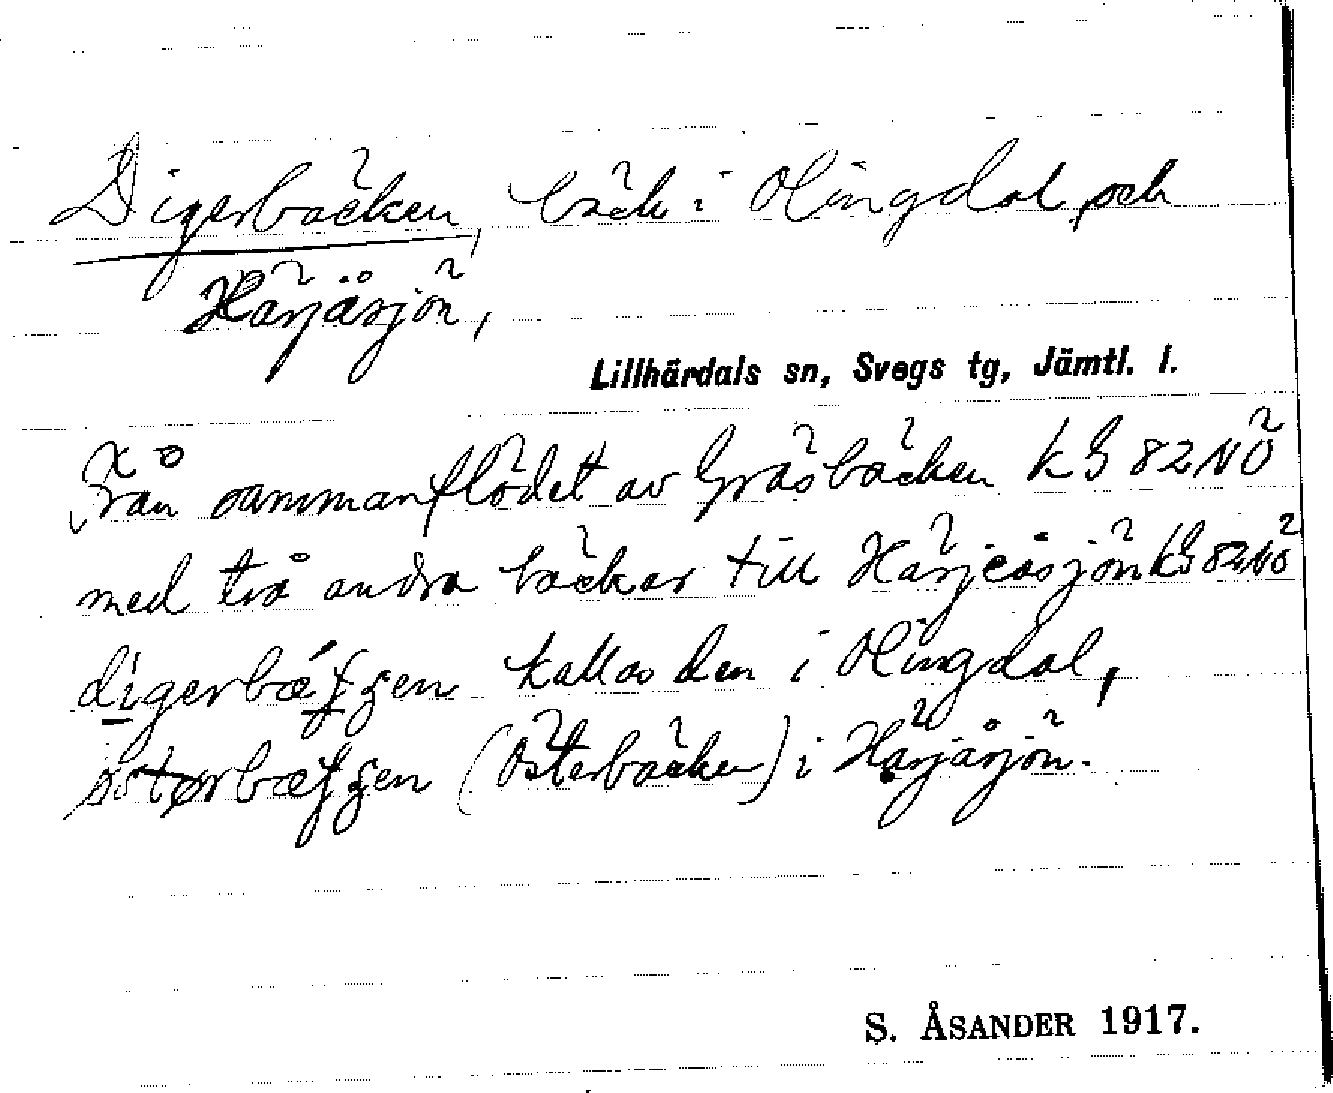 Digerbäcken, bäck i Olingdal och
Härjåsjön,
Lillhärdals sn, Svegs tg, Jämtl. l.
Från sammanflödet av Gräsbäcken kg 82 NÖ
med två andra bäckar till Härjeåsjön kg 82 NÖ
digerbæʃʃen kallas den i Olingdal,
(Österbäcken) i Härjåsjön.
S. ÅSANDER 1917.